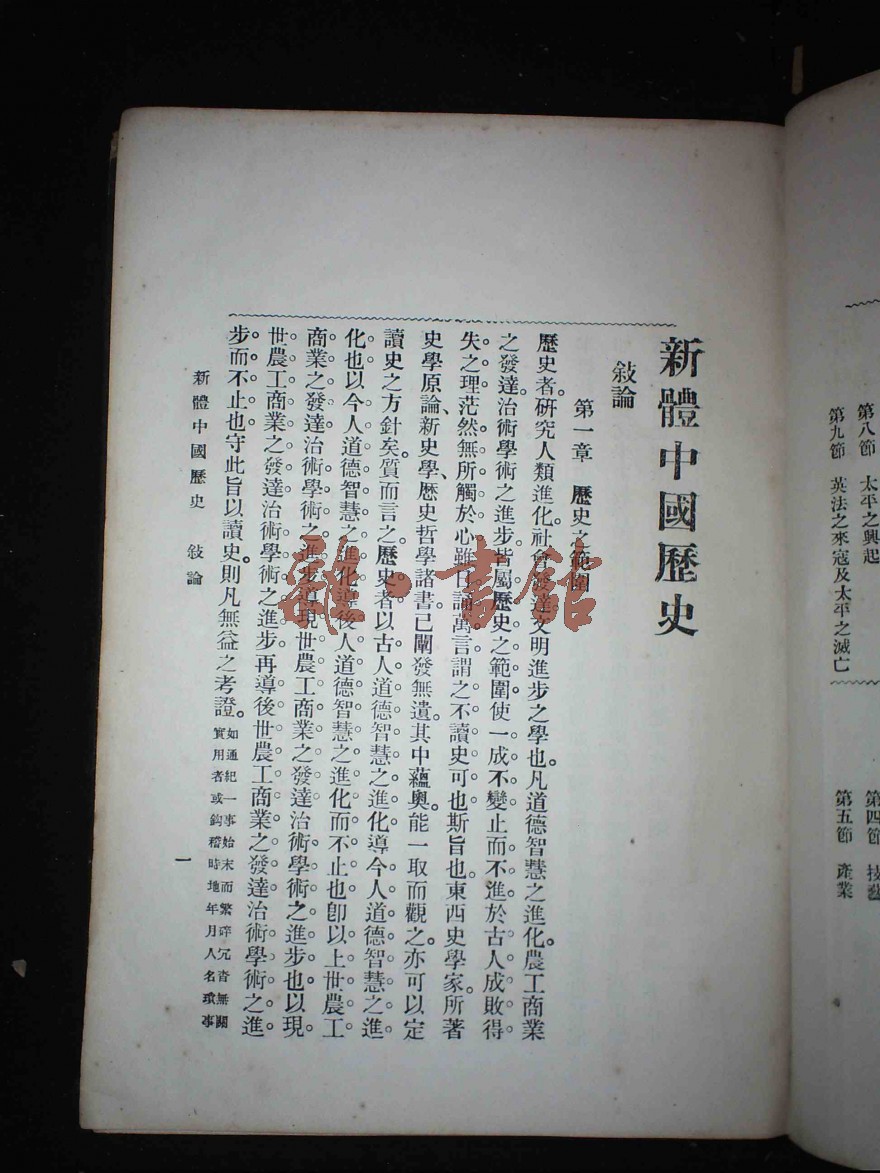 新體中國歷史
敍論
第一章 歷史之範圍
歷史者研究人類進化社會發達文明進步之學也。凡道德智慧之進化。農工商業
之發達。治術學術之進步。皆屬歷史之範圍。使一成不變。止而不進。於古人成敗得
失之理。茫然無所觸於心。雖日誦萬言。謂之不讀史可也。斯旨也。東西史學家。所著
史學原論、新史學、歷史哲學諸書。已闡發無遺。其中蘊奧。能一取而觀之。亦可以定
讀史之方針矣。質而言之。歷史者以古人道德智慧之進化。導今人道德智慧之進
化也。以今人道德智慧之進化。導後人道德智慧之進化而不止也。卽以上世農工
商業之發達。治術學術之進步。導現世農工商業之發達治術學術之進步也。以現
世農工商業之發達治術學術之進步。再導後世農工商業之發達治術學術之進
步而不止也。守此旨以讀史。則凡無益之考證。如通紀一事始末而繁碎冗沓無關
實用者或鈎稽時地年月人名瑣事
新體中國歷史 敍論 一
雜·書館
第八節 太平之興起
第九節 英法之來寇及太平之滅亡
第四節 技藝
第五節 產業